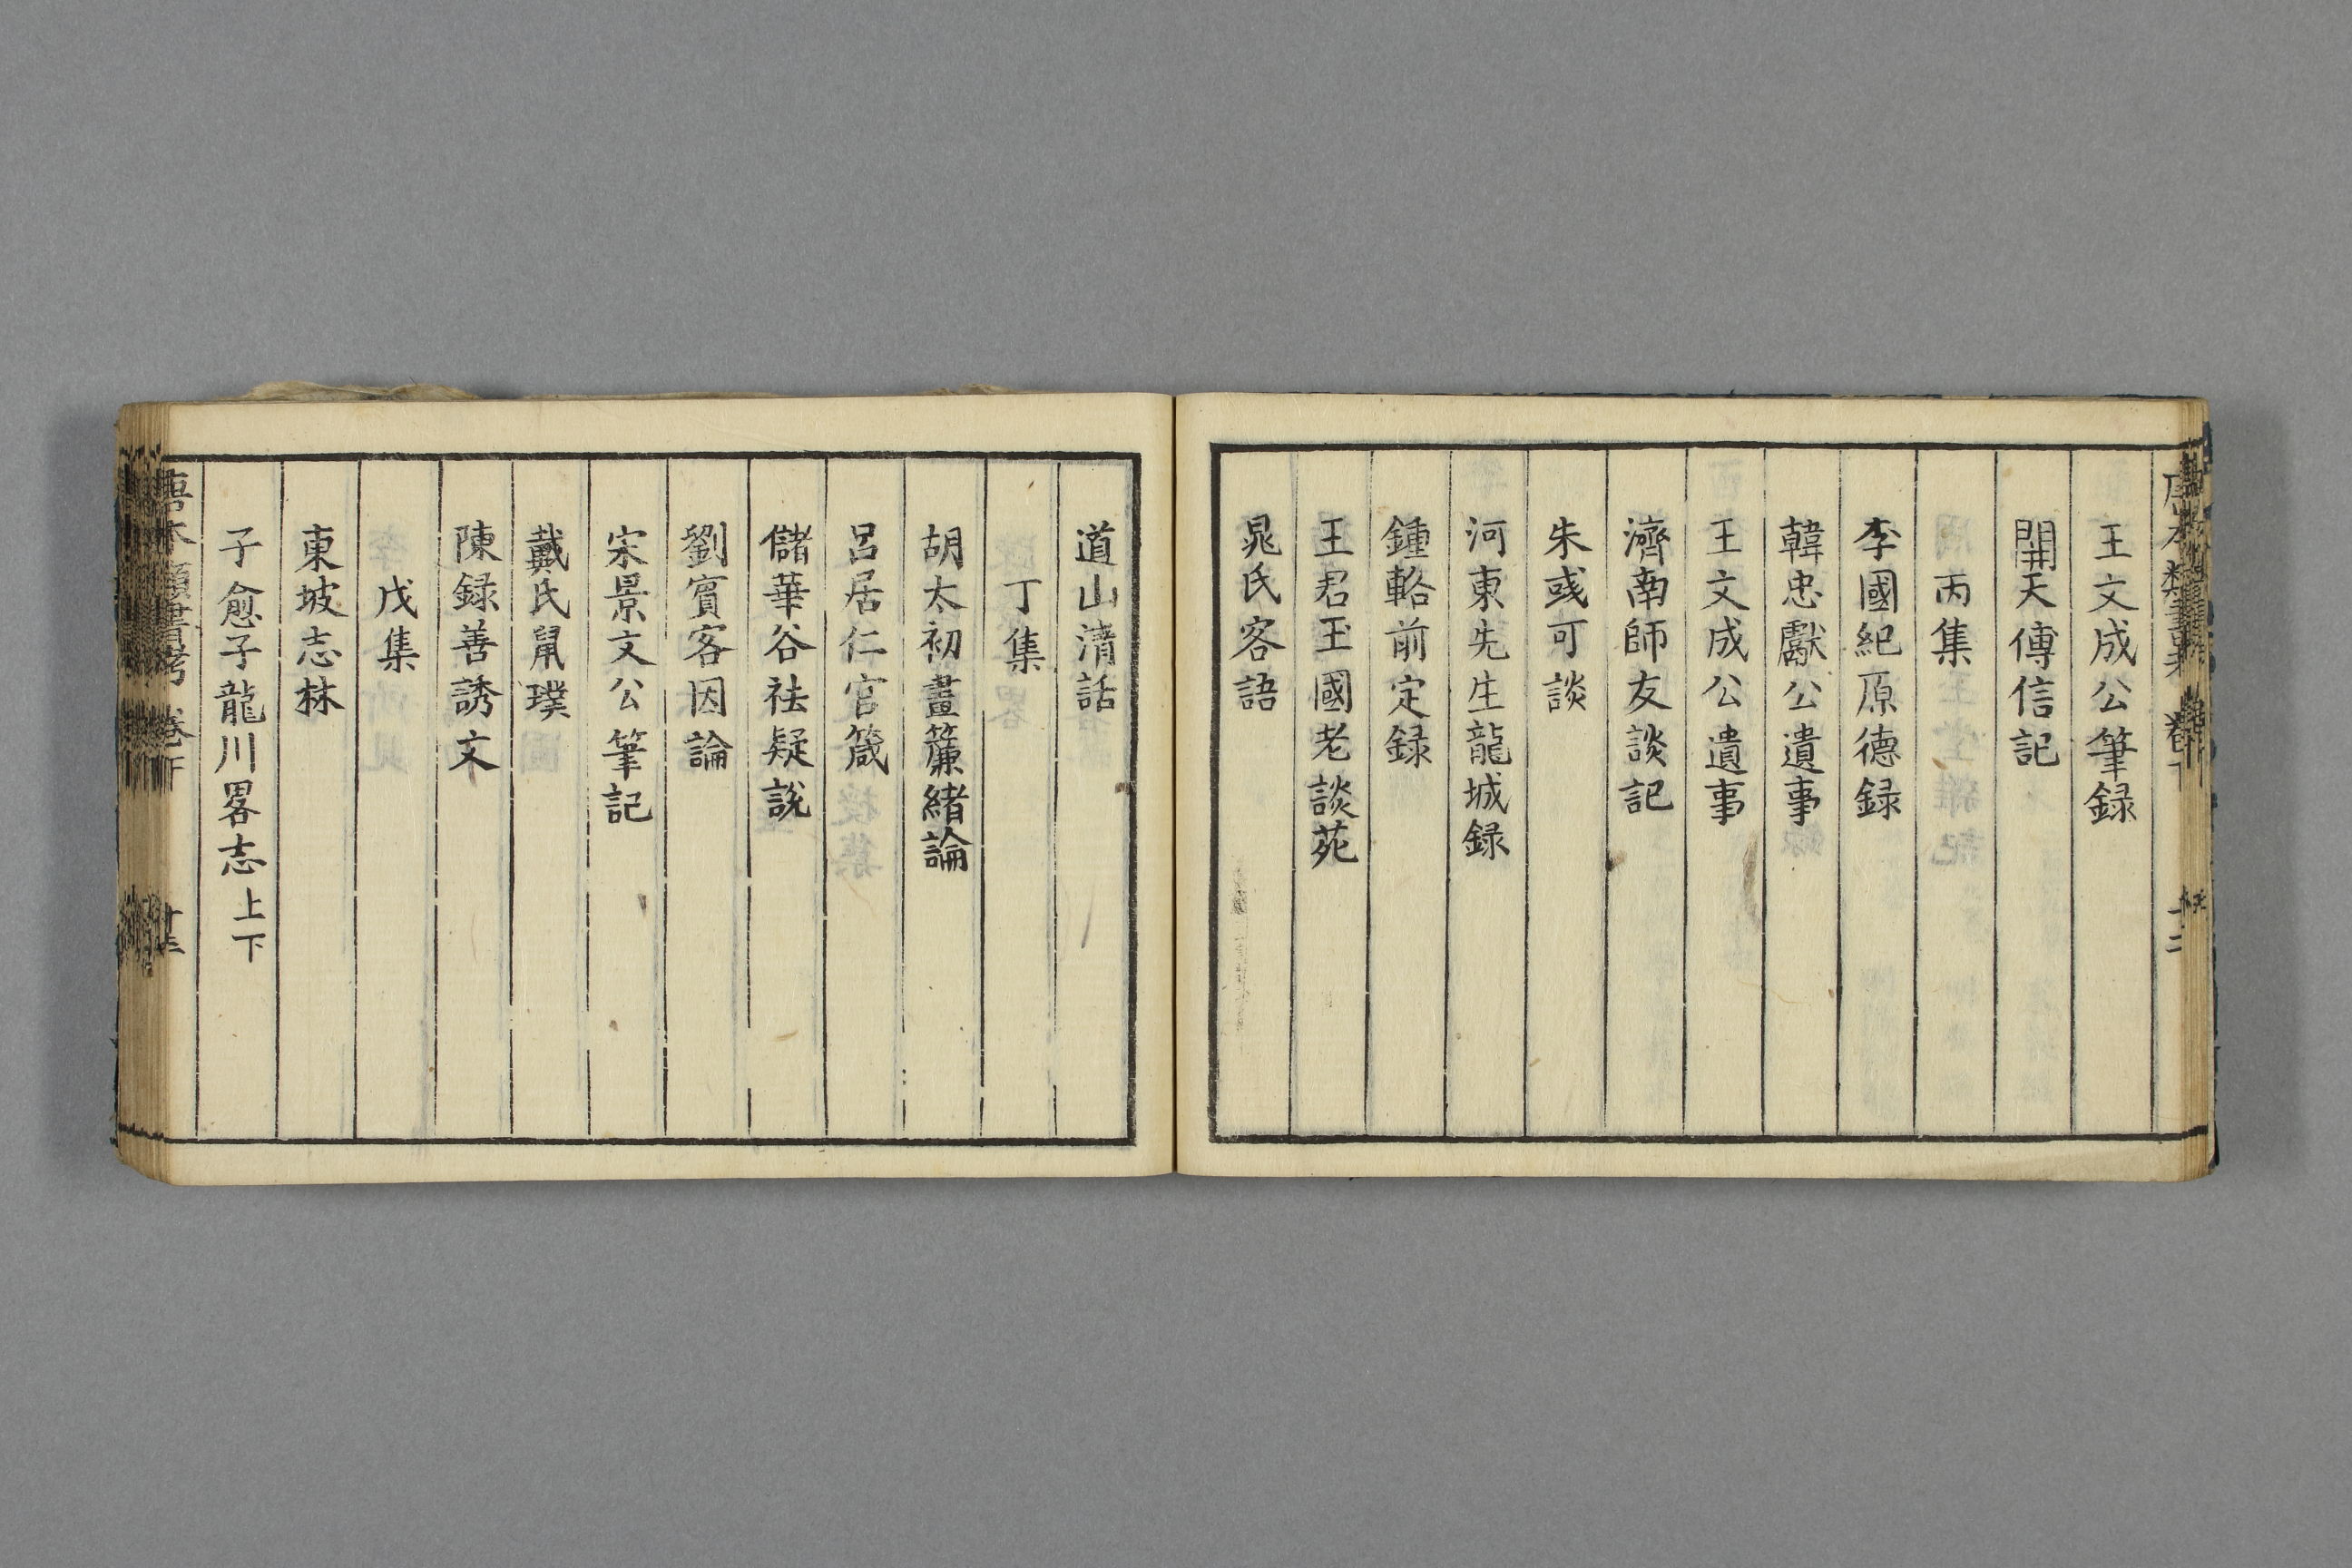 王文成公筆録
開天傳信記
丙集
李國紀厚德録
韓忠獻公遺事
王文成公遺事
濟南師友談記
朱彧可談
河東先生龍城録
鍾輅前定録
王君玉國老談苑
晁氏客語
道山清話
丁集
胡太初晝簾緒論
呂居仁官箴
儲華谷祛疑說
劉賓客因論
宋景文公筆記
戴氏鼠璞
陳録善誘文
戊集
東坡志林
子愈子龍川畧志上下
唐本類書考 卷下 十三